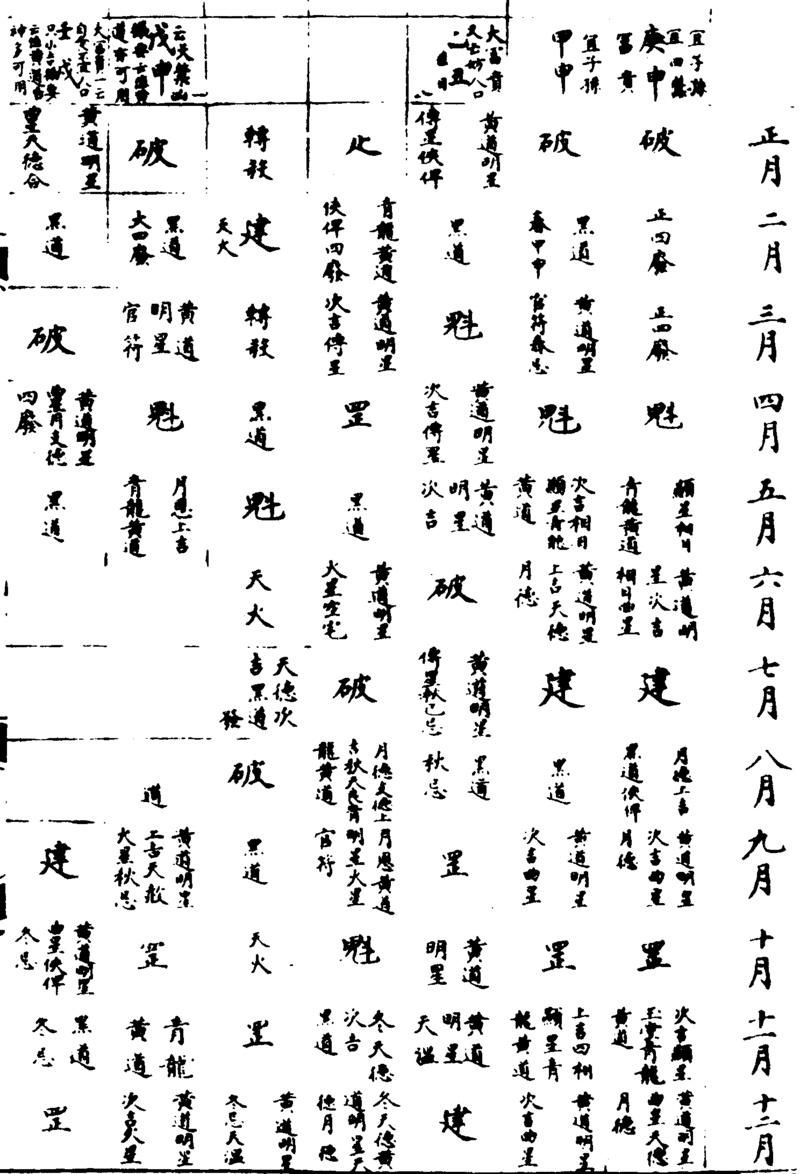 正月
二月
三月
四月
五月
六月
七月
八月
九月
十月
十一月
十二月
宜子孫
宜田蠶
庚申
富貴
破
正四廢
正四廢
魁
顯星相日
青龍黃道
黃道明
星次吉
相日曲星
建
月德上吉
黑道俠俾
黃道明星
次吉曲星
月德
罡
次吉顯星
玉堂青龍
黃道
黃道明星
曲星天德
月德
宜子孫
甲申
破
黑道
春甲申
黃道明星
官符春忌
魁
次吉相日
顯星青龍
黃道
黃道明星
上吉天德
月德
建
黑道
黃道明星
次吉曲星
罡
上吉四相
顯星青
龍黃道
黃道明星
次吉曲星
大富貴
又云妨人口
丑
黃道明星
傳星俠俾
黑道
魁
黃道明星
次吉傳星
黃道
明星
次吉
破
黃道明星
傳星秋己忌
黑道
秋忌
罡
黃道
明星
黃道
明星
天溫
建
止
青龍黃道
俠俾四廢
黃道明星
次吉傳星
罡
黑道
黃道明星
火星空宅
破
月德支德上
吉秋天良青
龍黃道
月恩黃道
明星火星
官符
魁
冬天德
次吉
黑道
冬天德黃
道明星天
德月德
轉殺
建
天火
轉殺
黑道
魁
天火
天德次
吉黑道
發
破
黑道
天火
罡
黃道明星
冬忌天溫
戊申
道亦可用
破
黑道
大四廢
黃道
明星
官符
魁
月恩上吉
青龍黃道
道
黃道明星
上吉天赦
火星秋忌
罡
青龍
黃道
黃道明星
次吉火星
大富貴一云
壬戌
神多可用
黃道明星
曲星天德合
黑道
破
黃道明星
曲星月支德
四廢
黑道
建
黃道明星
曲星俠俾
冬忌
黑道
冬忌
罡